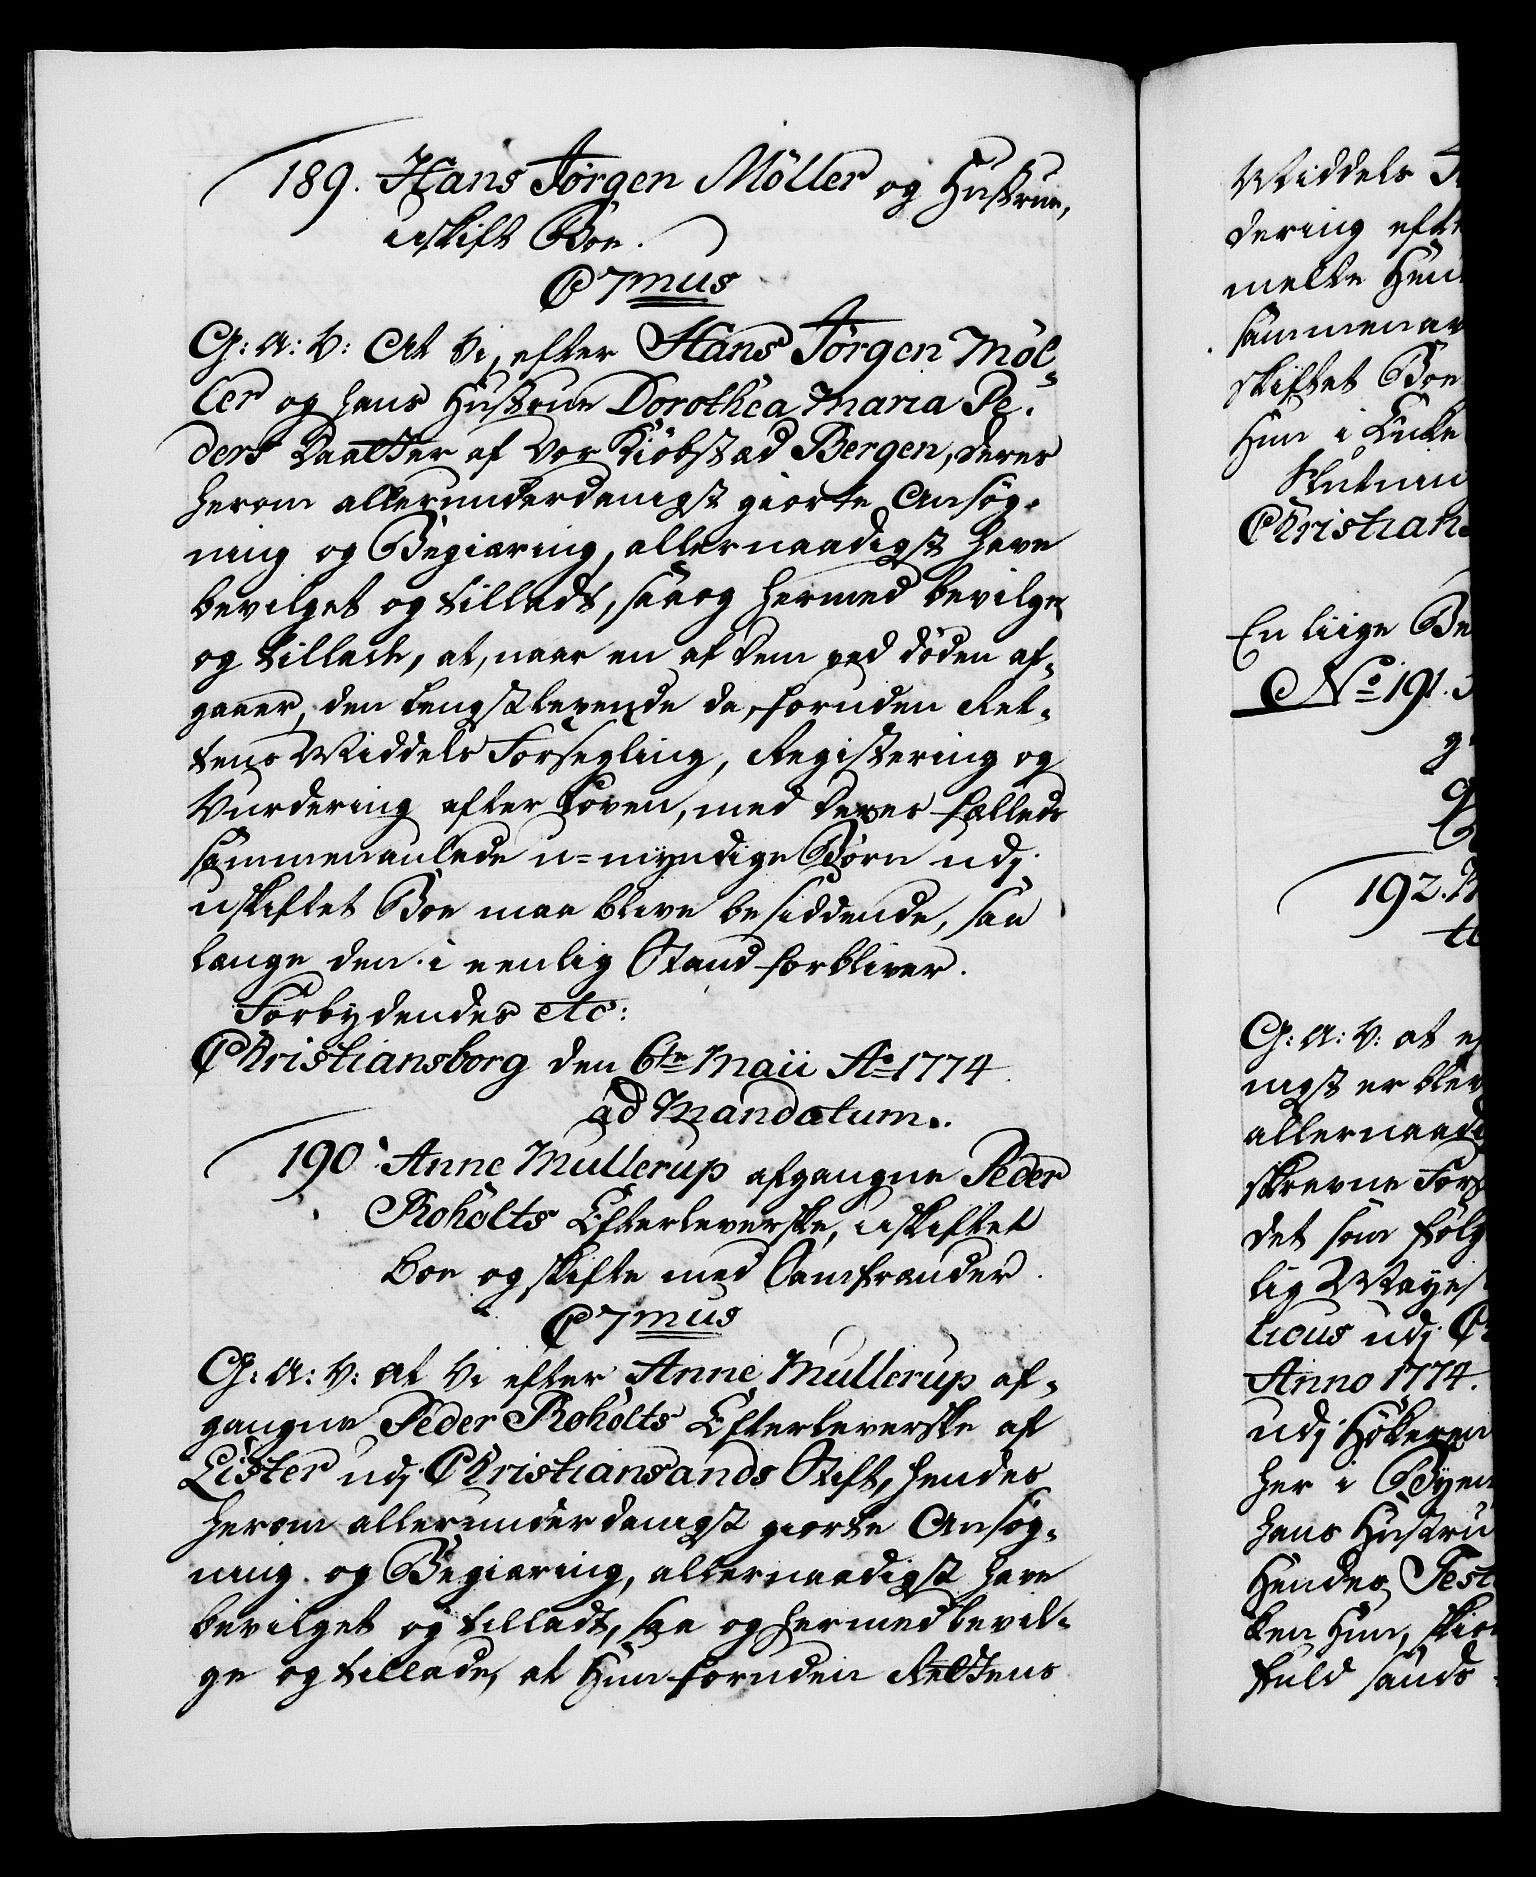 189. Hans Jörgen Möller og Hustrue,
uskift Boe.
C7mus
G: A: V: At Vi, efter Hans Jörgen Möl-
ler og hans Hustrue Dorothea Maria Pe-
ders Daatter af vor Kiöbstæd Bergen, deres
herom allerunderdanigst giorte Ansög-
ning og Begiæring, allernaadigst have
bevilget og tilladt, saa og hermed bevilge
og tillade, at, naar en af dem ved döden af-
gaaer, den lengstlevende da, foruden Ret-
tens Middels Forsegling, Registering og
Vurdering efter Loven, med deres fælleds
sammenavlede u-myndige Börn udj
uskiftet Boe maa blive besiddende, saa
længe den i eenlig Stand forbliver.
Forbydendes etc:
Christiansborg den 6te Maii Ao 1774
ad Mandatum.
190. Anne Mullerup afgangne Peder
Roholts Efterleverske, uskiftet
Boe og skifte med Samfrænder.
C7mus
G: A: V: at Vi efter Anne Mullerup af-
gangne Peder Roholts Efterleverske af
Lister udj Christiansands Stift, hendes
herom allerunderdanigst giorte Ansög-
ning og Begiæring, allernaadigst have
bevilget og tilladt, saa og hermed bevil-
ge og tillade, at Hun foruden Rettens
Middels
dering efte
melte Hen
sammenav
skiftet Boe
Hun i Enke
Christians
En liige Be
No 191.
192.
G: A: V: at
nigst er blev
allernaadi
skrevne For
det som fölg
lig Mayes
licus udj
Anno 1774.
udj Hökeren
her i Byen
hans Hustru
Hendes Test
ken Hun, skiö
fuld sands